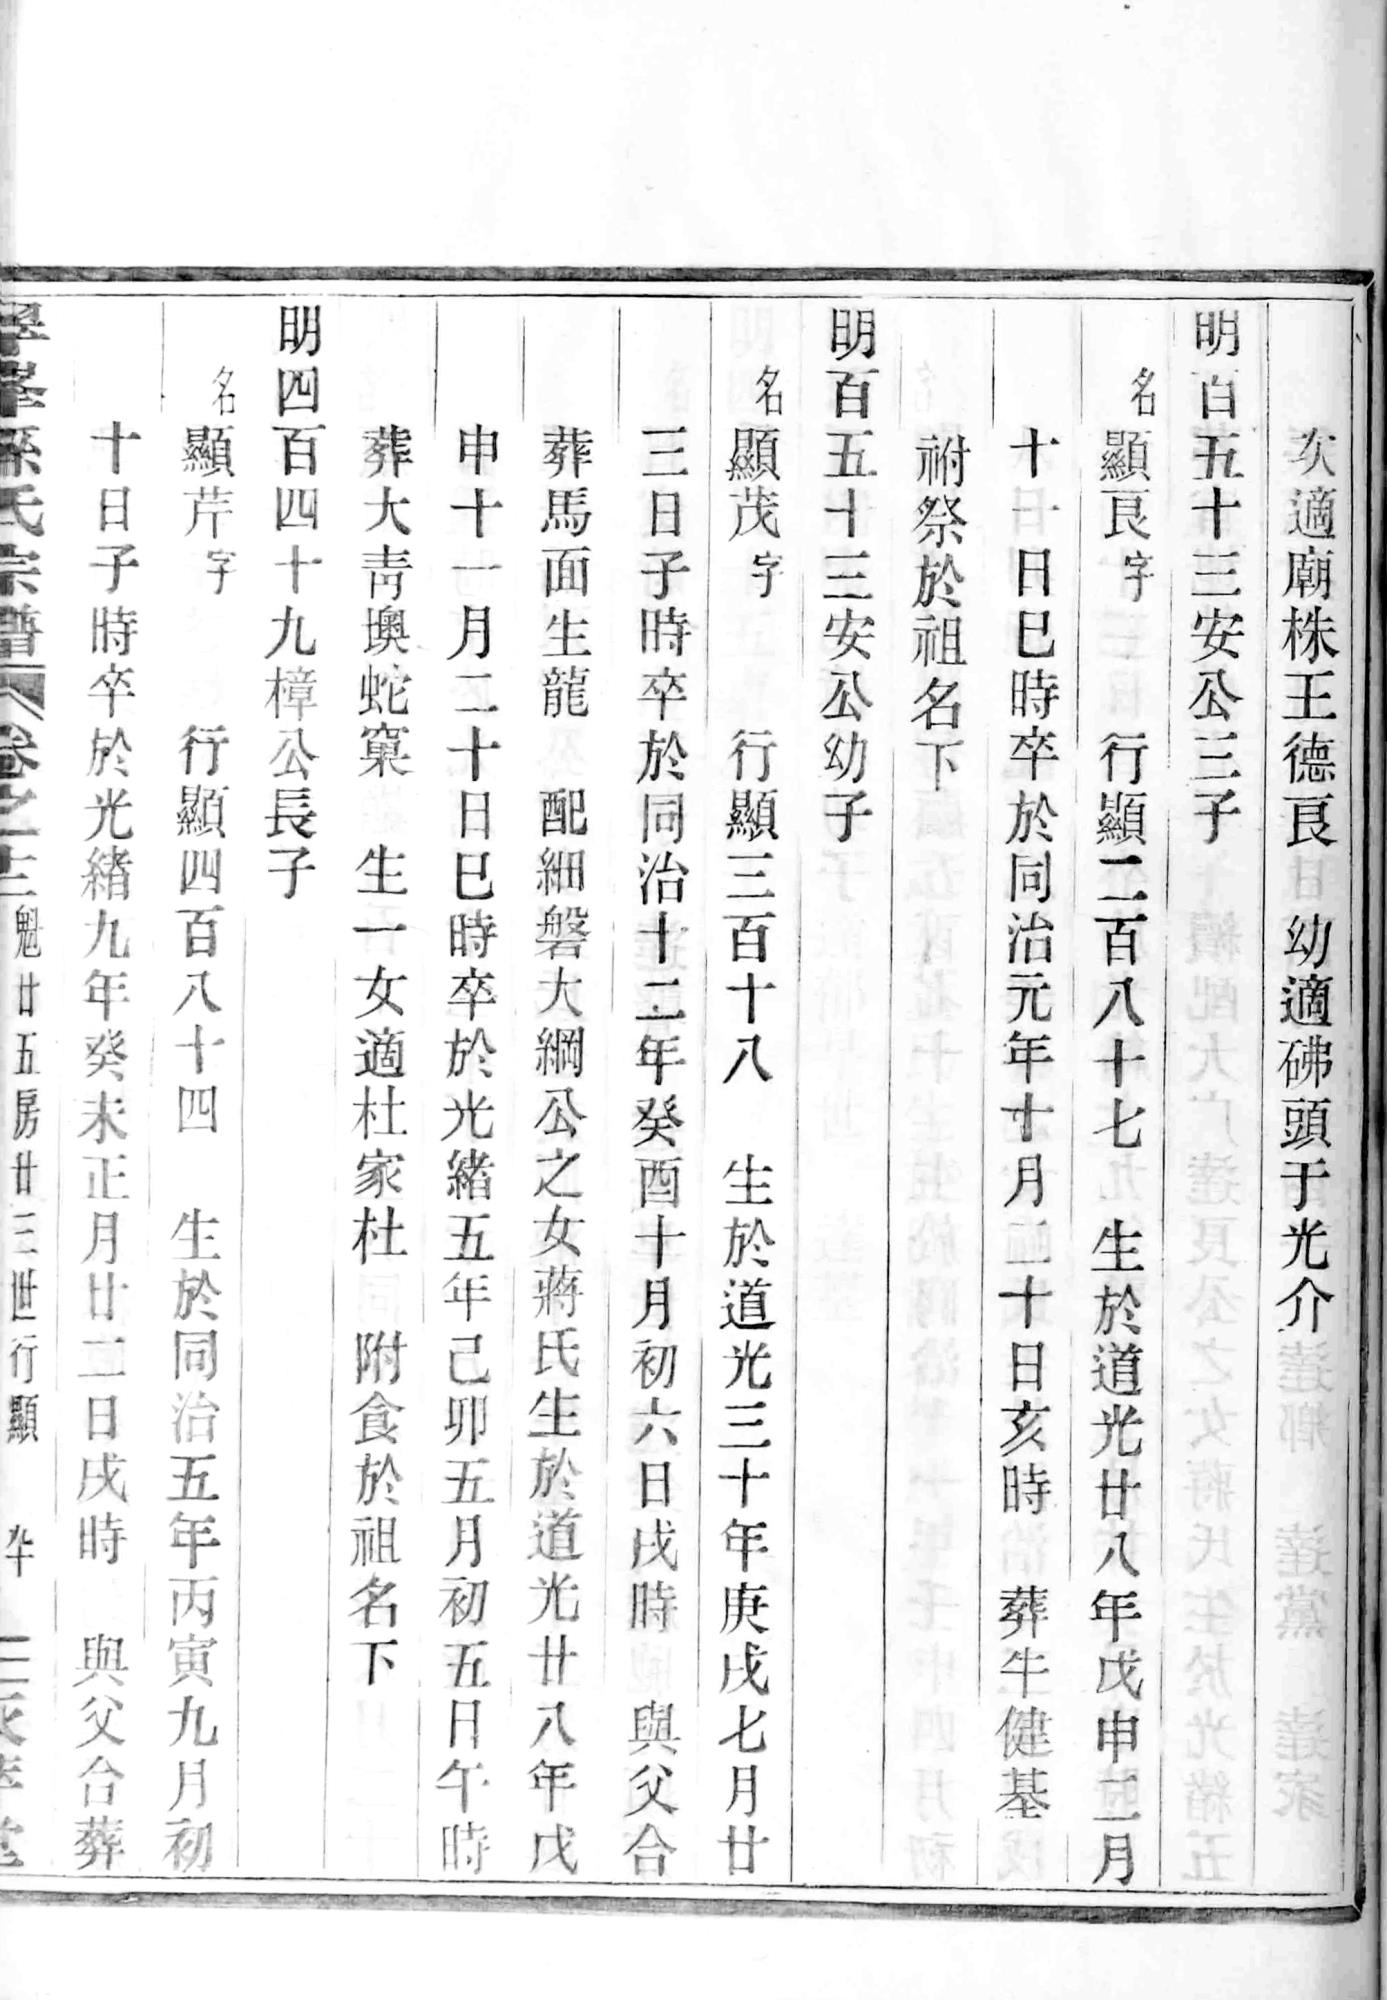 次適廟株王德良　幼適砩頭于光介
明百五十三安公三子
名顯良字　行顯二百八十七　生於道光廿八年戊申二月
十日巳時卒於同治元年十月二十日亥時　葬牛健基
祔祭於祖名下
明百五十三安公幼子
名顯茂字　行顯三百十八　生於道光三十年庚戌七月廿
三日子時卒於同治十二年癸酉十月初六日戌時　與父合
葬馬面生龍　配細磐大綱公之女蔣氏生於道光廿八年戊
申十一月二十日巳時卒於光緒五年己卯五月初五日午時
葬大青墺蛇窠　生一女適杜家杜　附食於祖名下
明四百四十九樟公長子
名顯芹字　行顯四百八十四　生於同治五年丙寅九月初
十日子時卒於光緒九年癸未正月廿二日戌時　與父合葬
孫氏宗譜　卷之十三　魁廿五房廿三世行顯　堂